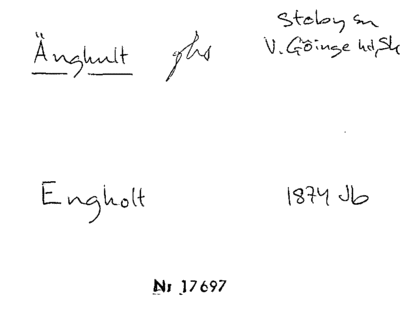 Stoby sn
Änghult ghs V. Göinge hd, Sk
Engholt 1874 Jb
Nr 17697